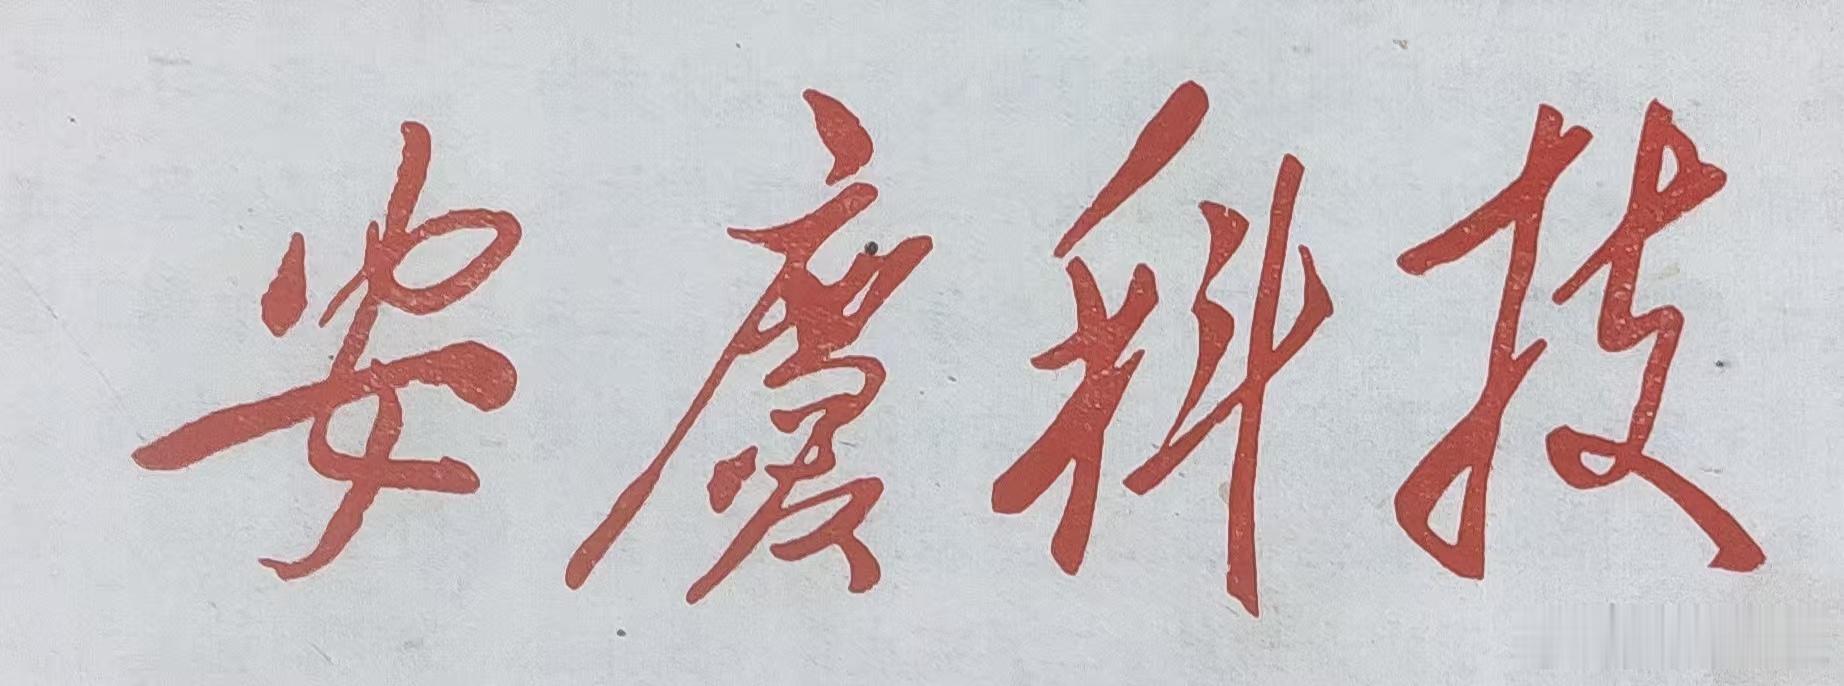 安慶科技